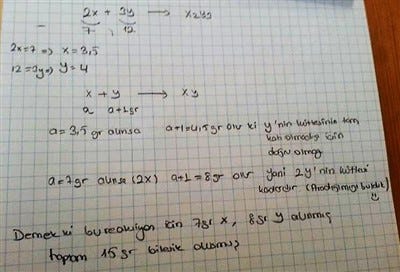 2x + 3y → x2y3
7 , 12
2x=7 => x=3,5
12=3y=> y=4
x + y → xy
a a+1gr
a=3,5 gr alınsa a+1=4,5gr olur ki y'nin kütlesinin tam
katı olmadığı için
doğru olmaz
a=7gr alınsa (2x) a+1=8gr olur yani 2y'nin kütlesi
kadardır (Aradığımızı bulduk)
Demek ki bu reaksiyon için 7gr x, 8gr y alınmış
toplam 15 gr bileşik oluşmuş